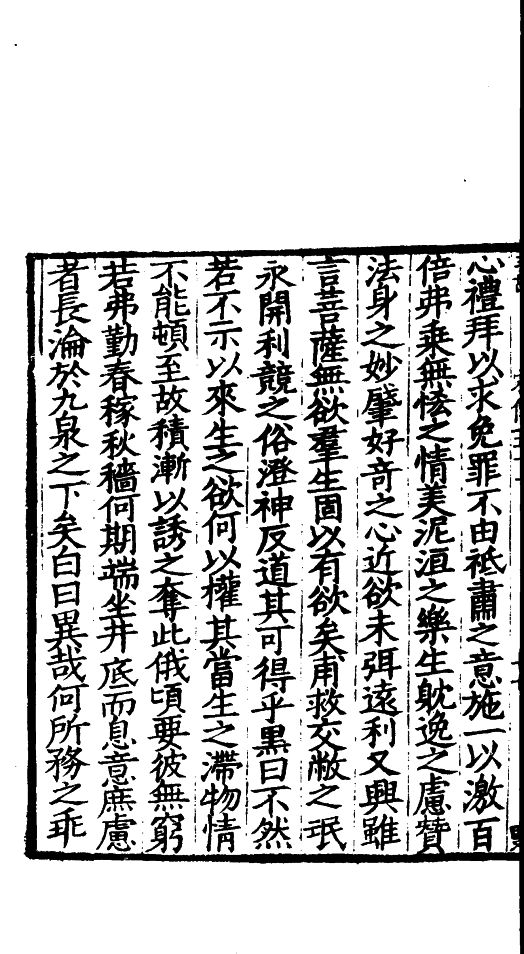 心禮拜以求免罪不由祗肅之意施一以激百
倍弗乘無悋之情美泥洹之樂生躭逸之慮贊
法身之妙肇好奇之心近欲未弭遠利又興雖
言菩薩無欲羣生固以有欲矣甫救交敝之珉
永開利競之俗澄神反道其可得乎黒曰不然
若不示以來生之欲何以權其當生之滯物情
不能頓至故積漸以誘之奪此俄頃要彼無窮
若弗勤春稼秋穡何期端坐井底而息意庶慮
者長淪於九泉之下矣白曰異哉何所務之乖